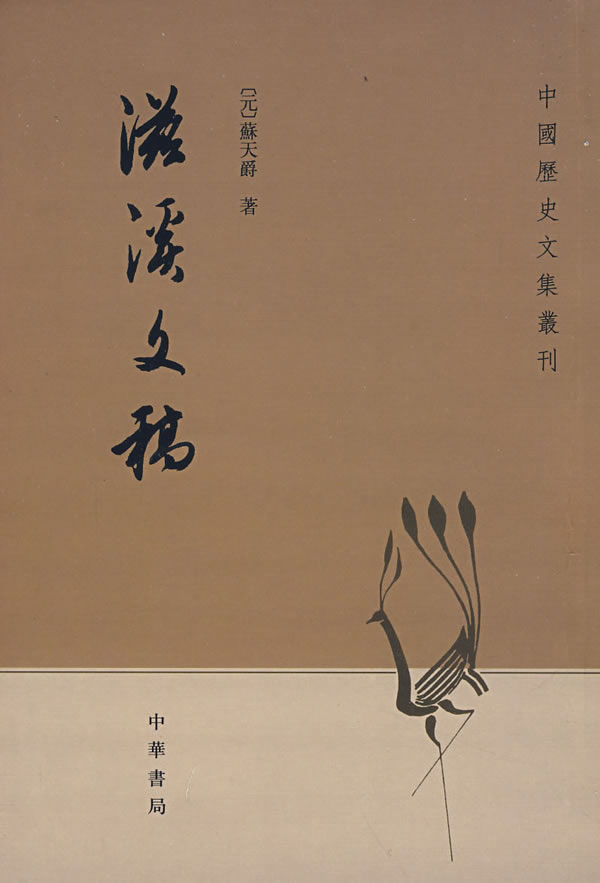 中國歷史文集叢刊
〔元〕蘇天爵 著
滋溪文稿
中華書局